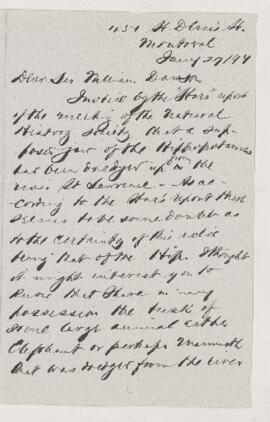 St. Denis St.
Montreal
Jany 27/94
Dear Sir William Dawson
I noticed by the "Star's" report
of the meeting of the Natural
History Society that a sup-
posed jaw of the Hippopotamus
has been dredged up from the
river St Lawrence - As ac-
cording to the Star's report there
seems to be some doubt as
to the certainty of this relic
being that of the Hip. I thought
it might interest you to
know that I have in my
possession the tusk of
some large animal either
Elephant or perhaps Mammoth
that was dredged from the river